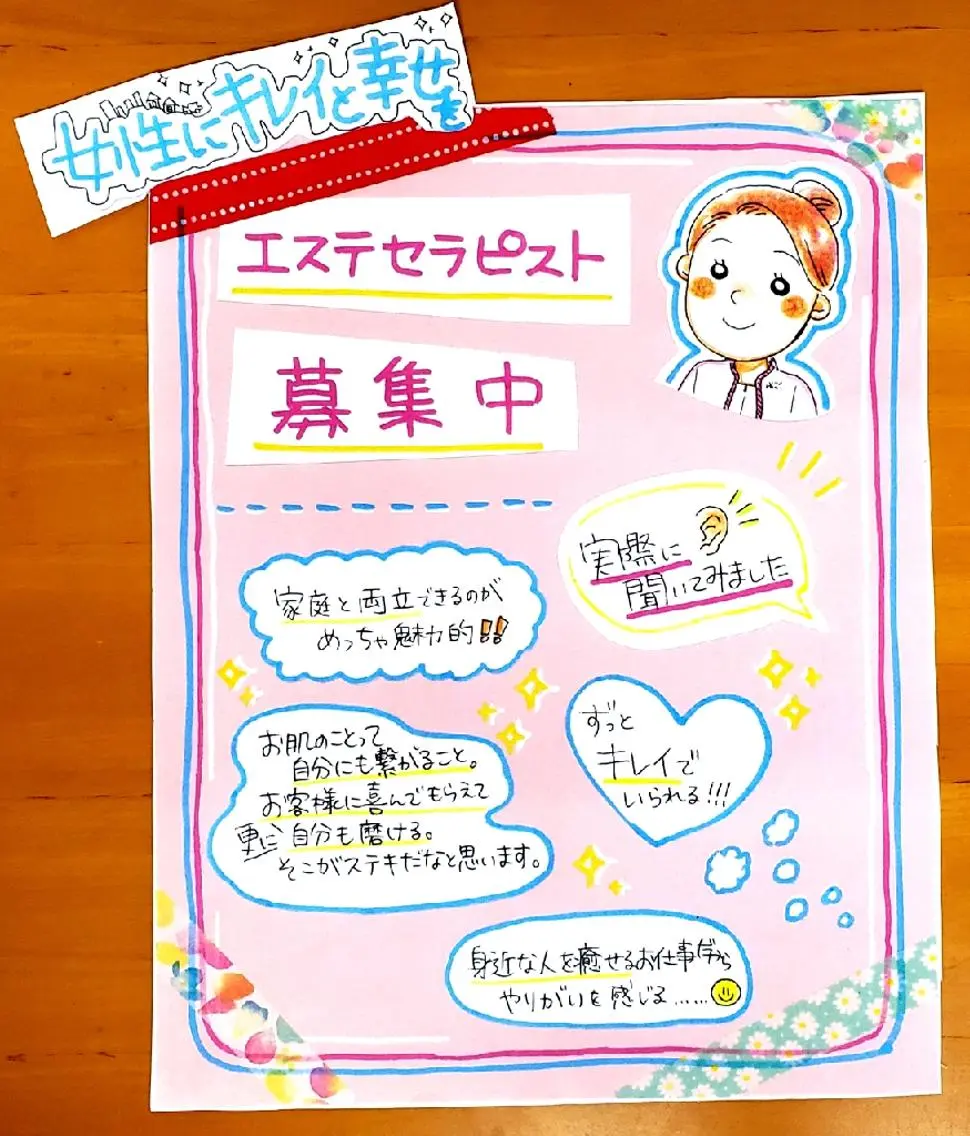 女性にキレイと幸せを
エステセラピスト
募集中
実際に
聞いてみました
家庭と両立できるのが
めっちゃ魅力的!!
ずっと
キレイで
いられる!!!
お肌のことって
自分にも繋がること。
お客様に喜んでもらえて
更に自分も磨ける。
そこがステキだなと思います。
身近な人を癒せるお仕事だから
やりがいを感じる……